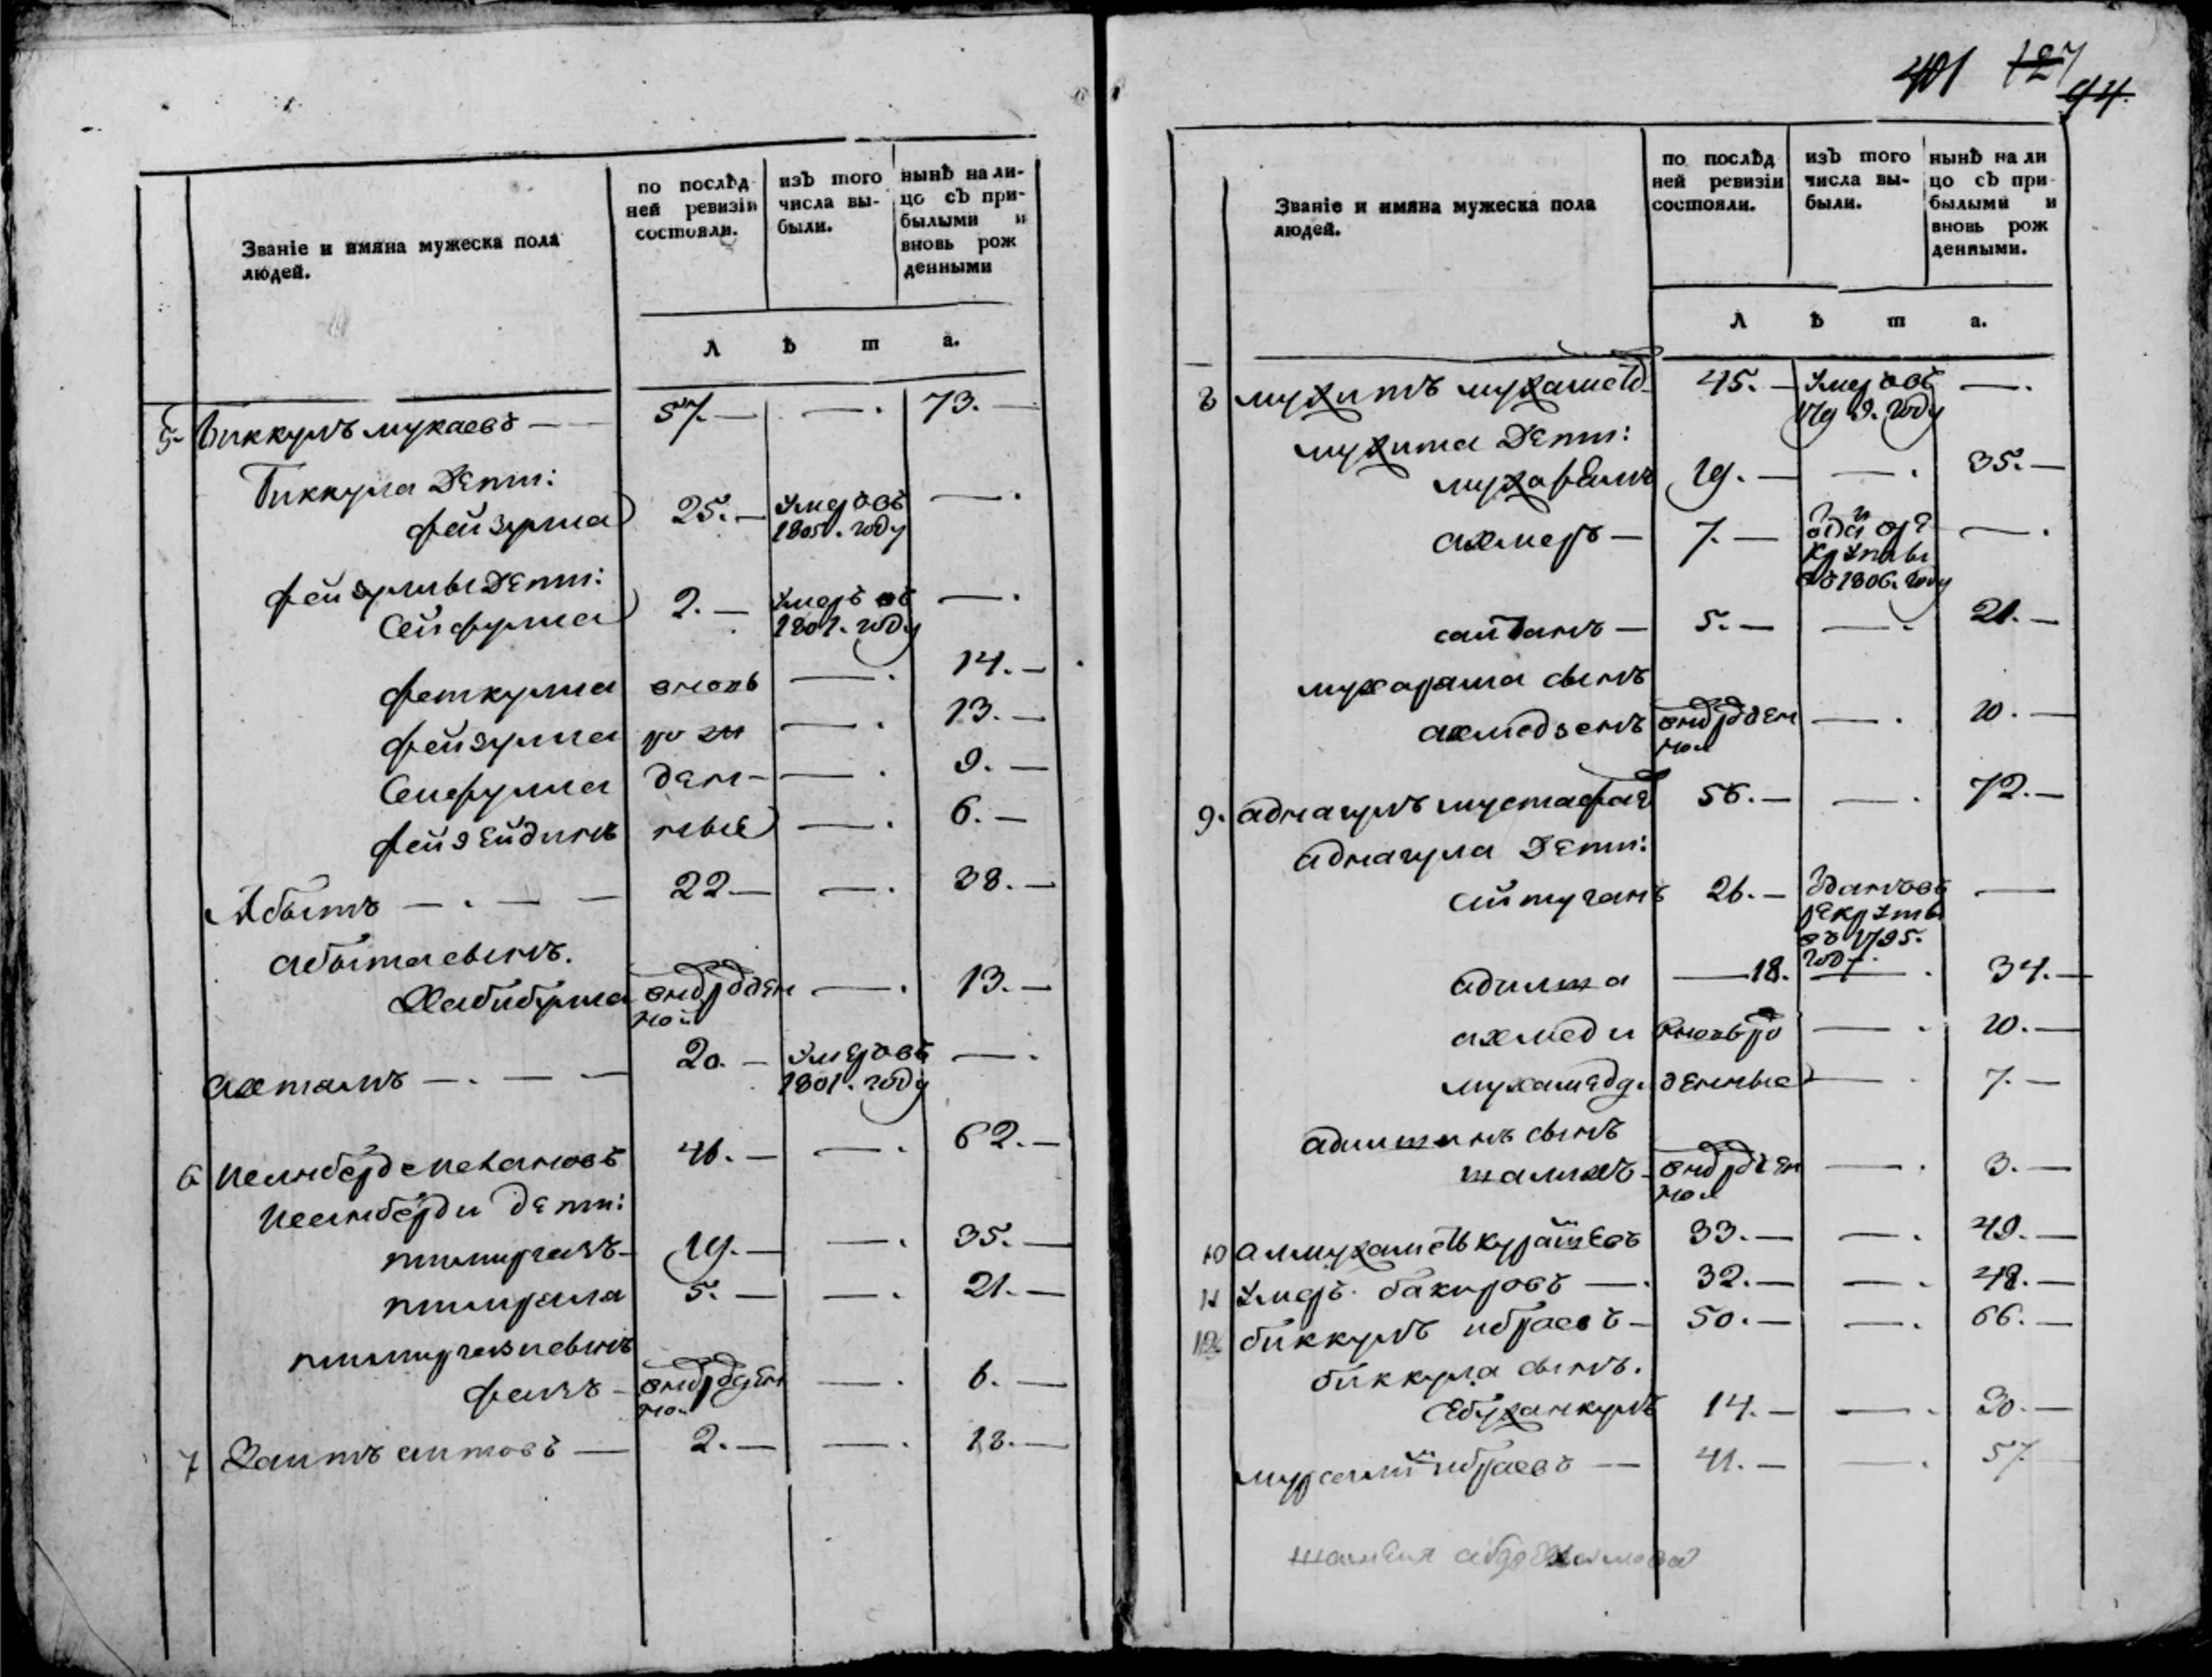 401 127
94.
Званіе и имяна мужеска пола людей.
по послѣдней ревизіи состояли.
изъ того числа выбыли.
нынѣ на лицо съ прибылыми и вновь рожденными
Л ѣ т а.
5. Биккулъ мукаевъ — 57. — — . 73. —
Биккула дети:
фейзулла 25. — умеръ въ — .
1805. году
фейзуллы дети:
Сейфулла 2. — умеръ въ — .
1801. году
феткулла вновь — . 14. —
фейзулла рож — . 13. —
Сейфулла ден- — . 9. —
фейзейдинъ ные — . 6. —
Абытъ — . — — 22 — — . 38. —
абыта сынъ.
Хабибулла вновьрожден — . 13. —
ной
ахтамъ — . — — 20. — умеръ въ — .
1801. году
6 46. — — . 62. —
дети:
19. — — . 35. —
5. — — . 21. —
сынъ
вновьрожден — . 6. —
ной
7 Заитъ аитовъ — 2. — — . 18. —
Званіе и имяна мужеска пола людей.
по послѣдней ревизіи состояли.
изъ того числа выбыли.
нынѣ на лицо съ прибылыми и вновь рожденными.
Л ѣ т а.
8 мухитъ мухамед 45. — умеръ въ — .
179 9. году
мухита дети:
мухарямъ 19. — — . 35. —
ахмеръ — 7. — отданъ в ре — .
круты
въ 1806. году
сайтанъ — 5. — — . 21. —
мухаряма сынъ
ахмедзянъ вновьрожден — . 10. —
ной
9. аднагулъ мустафае 56. — — . 72. —
аднагула дети:
айтуганъ 26. — зданъ въ —
рекруты
въ 1795.
году.
адилша — 18. — . 34. —
ахмеди вновь ро — . 10. —
мухамедд. денные — . 7. —
адилши сынъ
шалихъ вновьрожден — . 3. —
ной
10 алмухаметь курашевъ 33. — — . 49. —
11 умеръ бакировъ — . 32. — — . 48. —
12 биккулъ ибраевъ — 50. — — . 66. —
биккула сынъ.
14. — — . 30. —
мурсалий ибраевъ — 41. — — . 57.